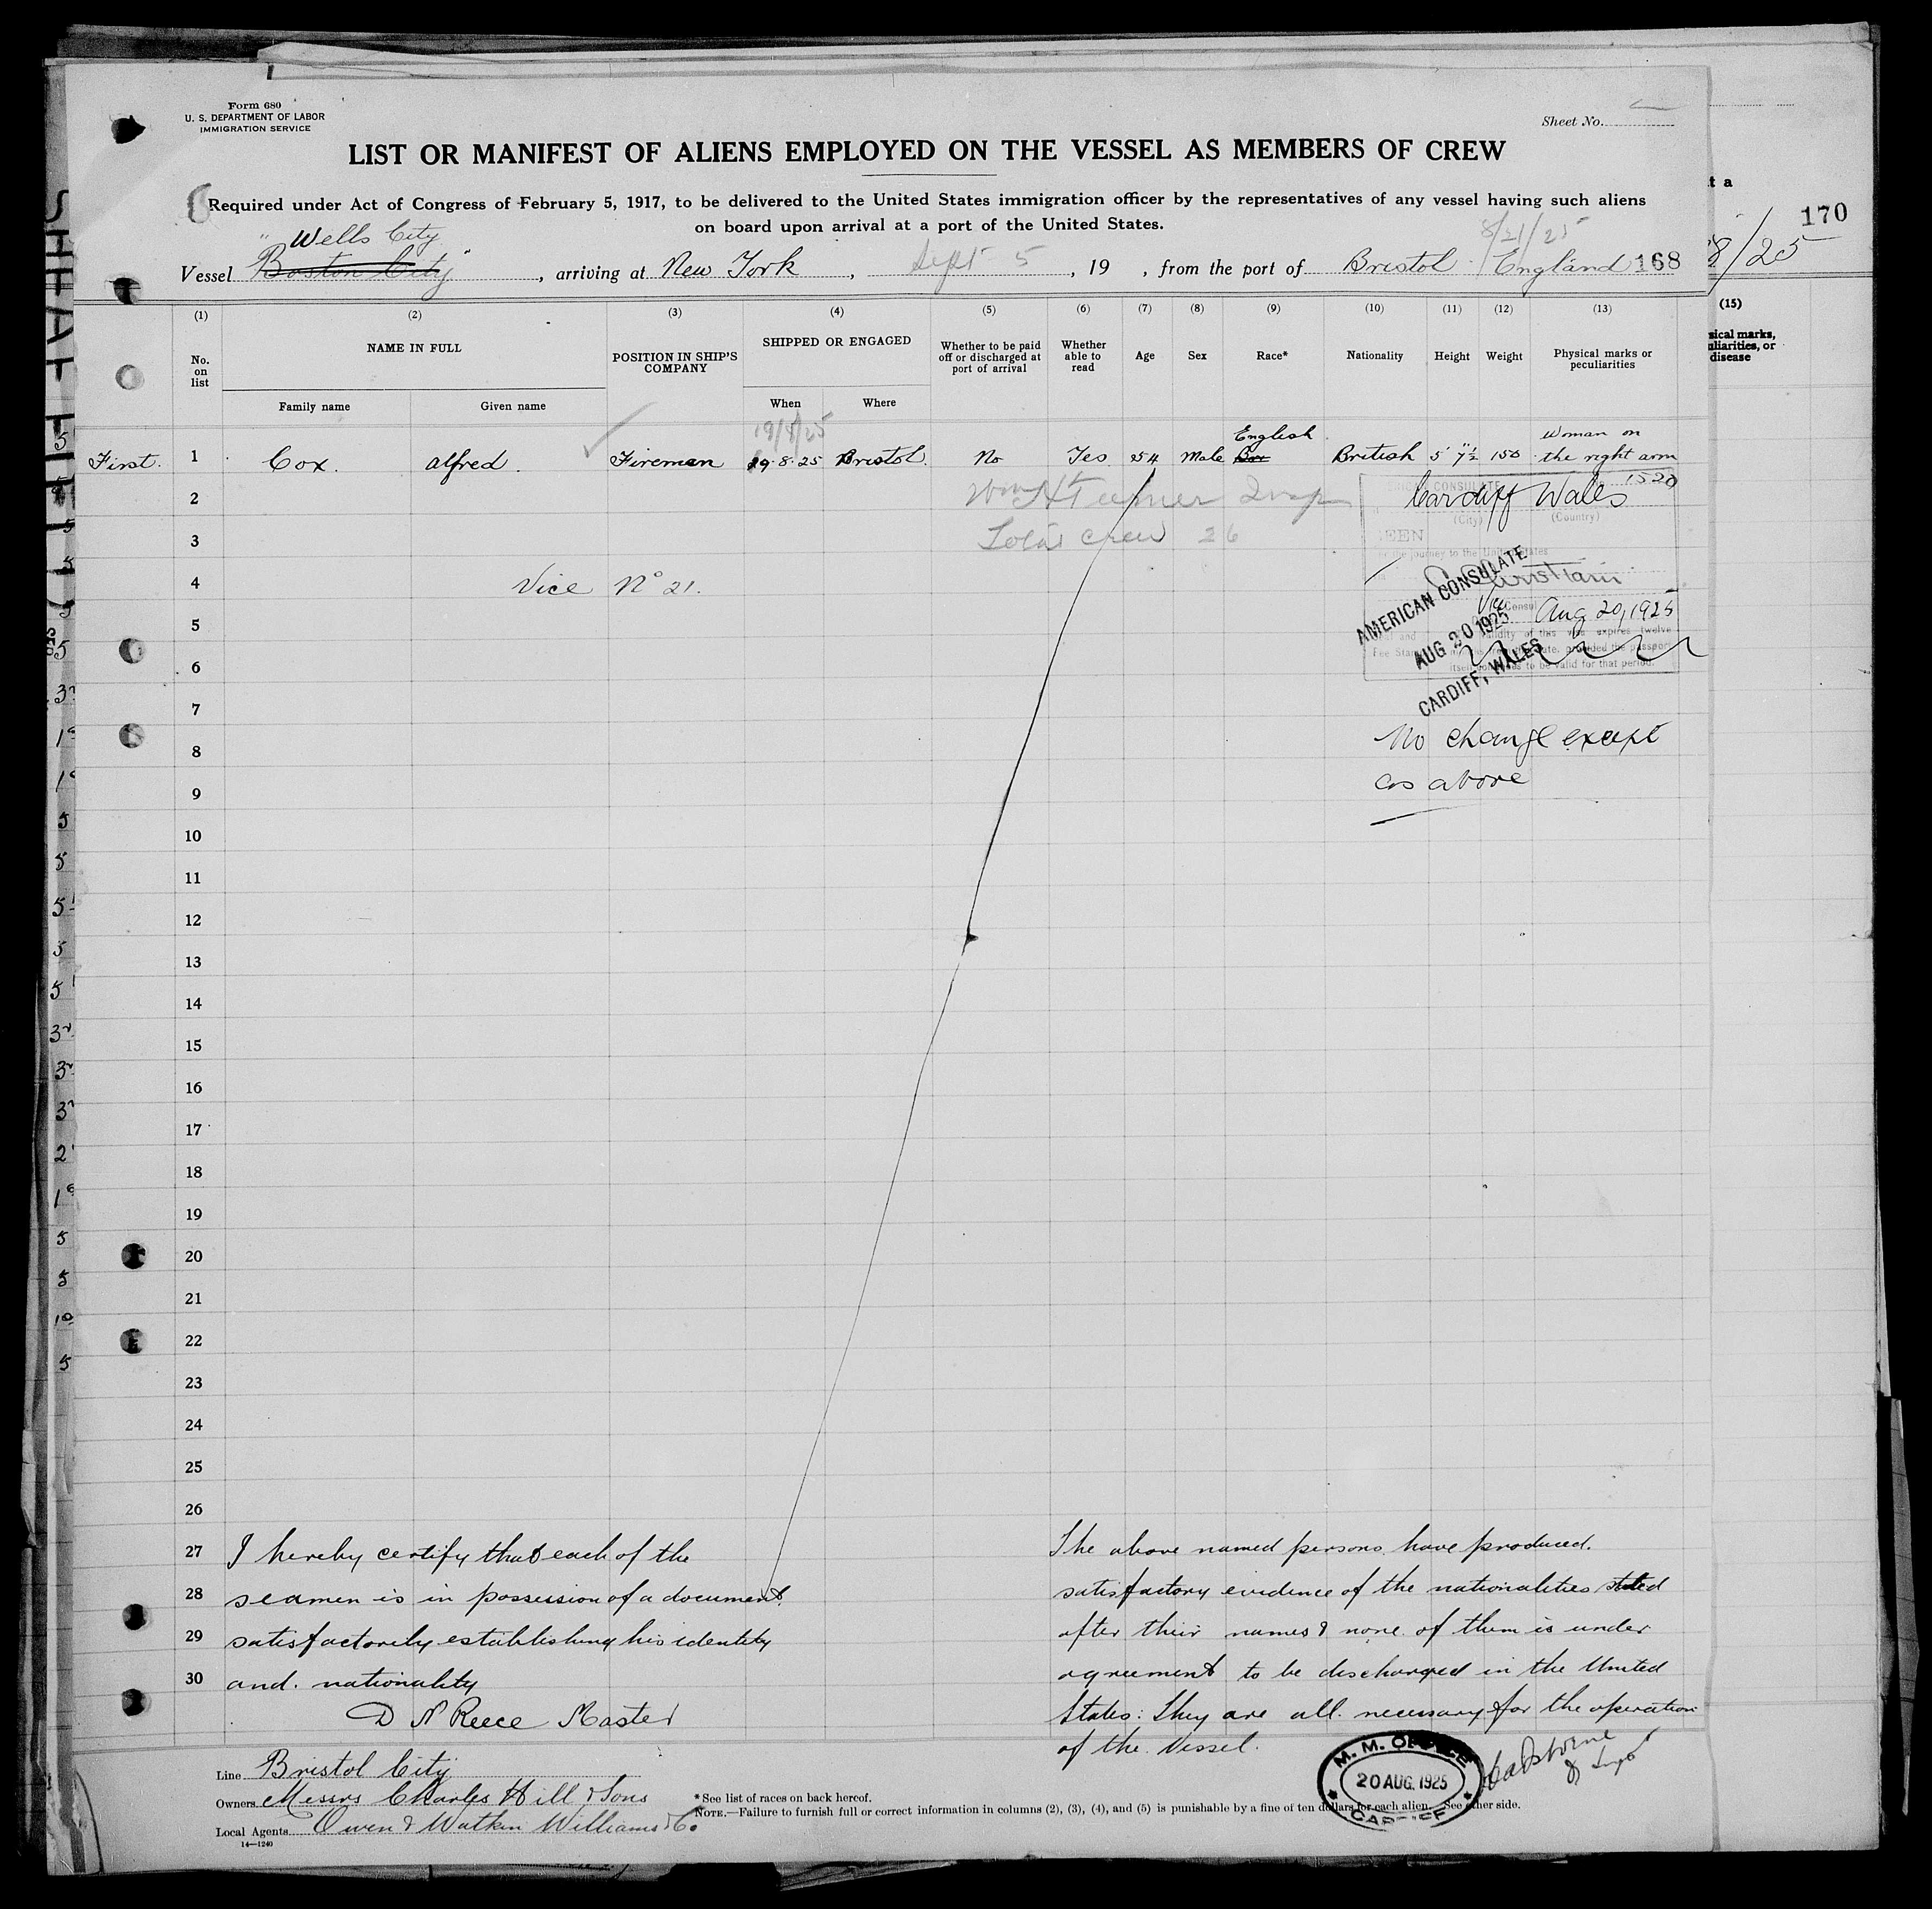 Form 680
U. S. DEPARTMENT OF LABOR
IMMIGRATION SERVICE
Sheet No.
LIST OR MANIFEST OF ALIENS EMPLOYED ON THE VESSEL AS MEMBERS OF CREW
Required under Act of Congress of February 5, 1917, to be delivered to the United States immigration officer by the representatives of any vessel having such aliens
on board upon arrival at a port of the United States.
t a
170
8/25
" Wells City
8/21/25
Vessel Boston City, arriving at New York, Sept 5, 19 , from the port of Bristol England 168
(1) (2) (3) (4) (5) (6) (7) (8) (9) (10) (11) (12) (13) (15)
No. on list NAME IN FULL POSITION IN SHIP'S COMPANY SHIPPED OR ENGAGED Whether to be paid off or discharged at port of arrival Whether able to read Age Sex Race* Nationality Height Weight Physical marks or peculiarities
sical marks,
uliarities, or
disease
Family name Given name When Where
19/8/25 English Woman on
First. 1 Cox. Alfred. Fireman 19.8.25 Bristol. No Yes Male British 5' 7½" 150 the right arm
2 Cardiff Wales 1520
(City) (Country)
3 Total crew 26
EEN
the journey to the United States
4 Vice No 21.
AMERICAN CONSULATE
AUG 20 1925
CARDIFF, WALES
Vice Consul Aug 20, 1925
5
validity of this visa expires twelve
Fee Stamp date, provided the passport
itself continues to be valid for that period.
6
7
8 No change except
9 as above
10
11
12
13
14
15
16
17
18
19
20
21
22
23
24
25
26
27 I hereby certify that each of the
28 seamen is in possession of a document
29 satisfactorily establishing his identity
30 and. nationality
D N Reece Master
The above named persons have produced.
satisfactory evidence of the nationalities stated
after their names & none of them is under
agreement to be discharged in the United
States: They are all necessary for the operation
of the Vessel.
M. M. OFFICE
20 AUG. 1925
CARDIFF
Line Bristol City
Owners Messrs Charles Hill & Sons
Local Agents Owen & Watkin Williams & Co
14—1240
*See list of races on back hereof.
NOTE.—Failure to furnish full or correct information in columns (2), (3), (4), and (5) is punishable by a fine of ten dollars for each alien. See other side.